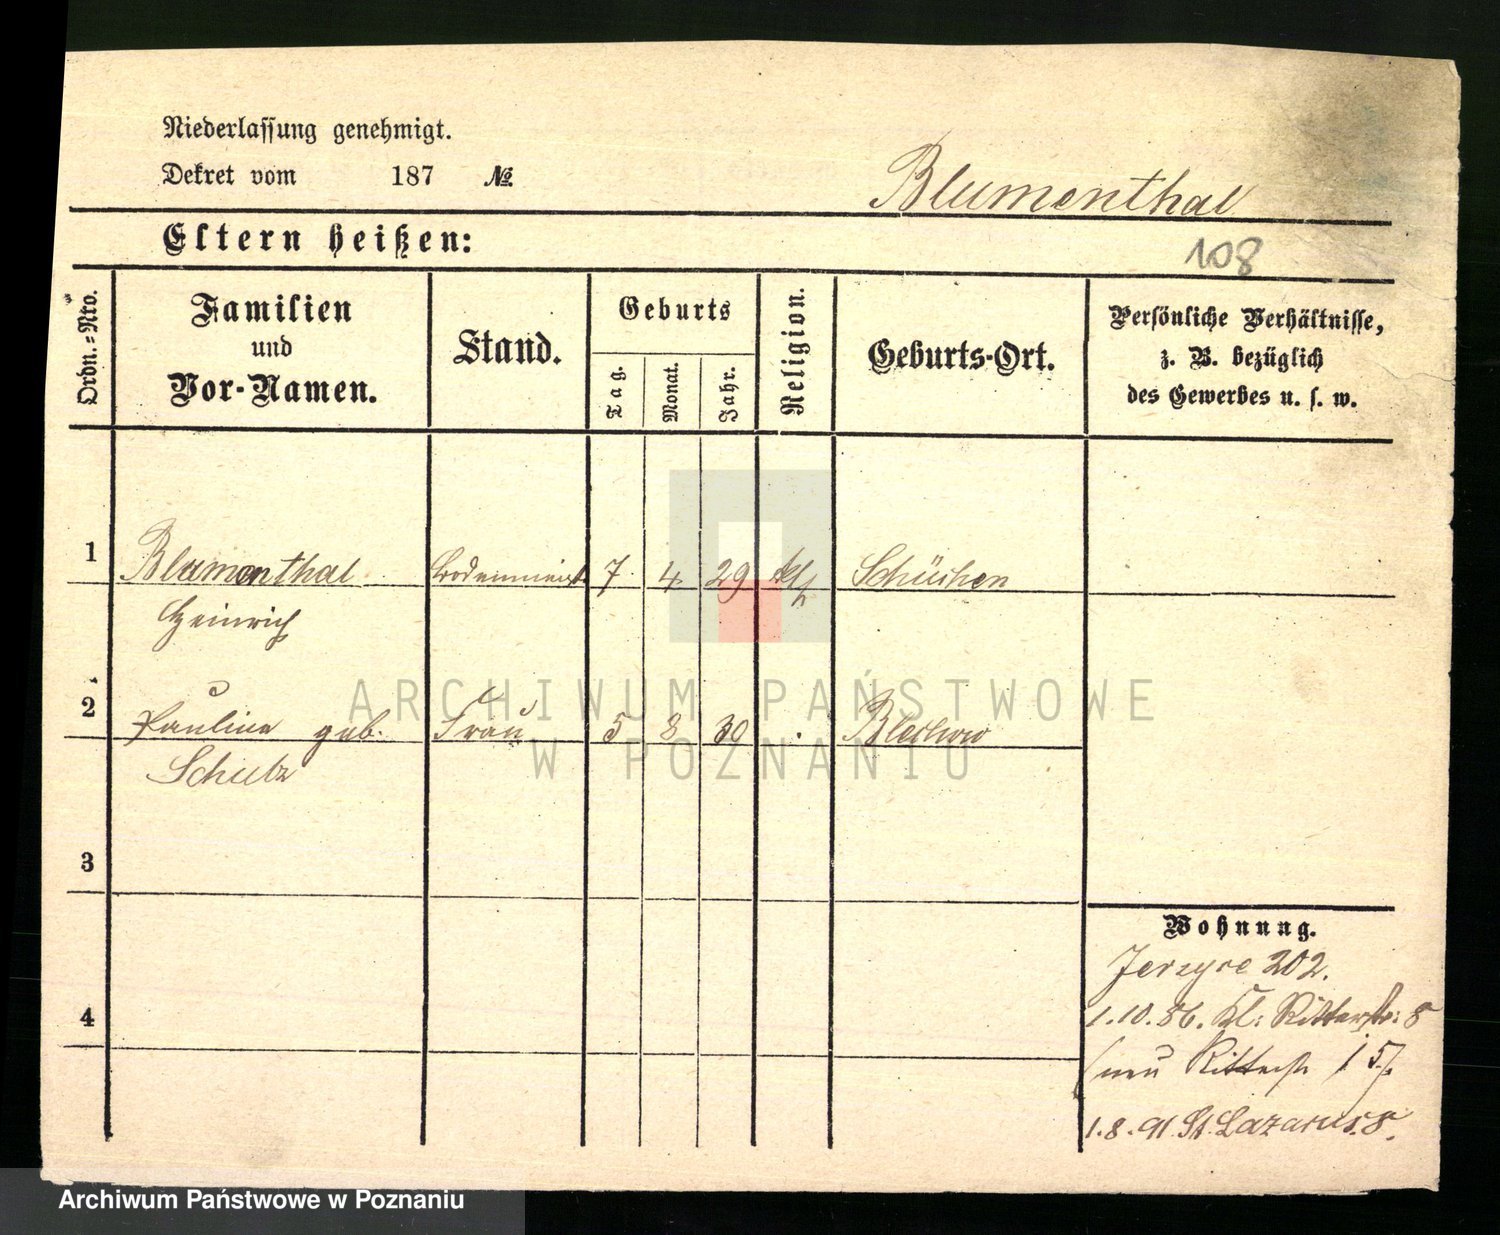 Niederlassung genehmigt.
Dekret vom 187 №.
Blumenthal
Eltern heißen:
108
Ordn.=Nro.
Familien
und
Vor-Namen.
Stand.
Geburts
Tag.
Monat.
Jahr.
Religion.
Geburts-Ort.
Persönliche Verhältnisse,
z. B. bezüglich
des Gewerbes u. s. w.
1 Blumenthal Bodenmeist 7 4 29
Heinrich
2 Pauline geb. Frau 5 8 30
Schulz
ARCHIWUM PAŃSTWOWE
W POZNANIU
3
4
Wohnung.
Jerzyce 202.
1.10.86. Kl: Ritterstr: 8
(neu Ritterstr 15)
1.8.91 St. Lazarus 8.
Archiwum Państwowe w Poznaniu